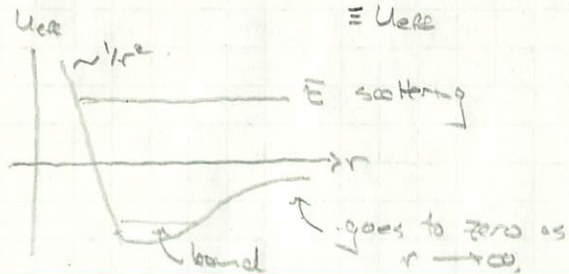 Ueff
≡ Ueff
~1/r²
E scattering
r
bound
goes to zero as
r → ∞